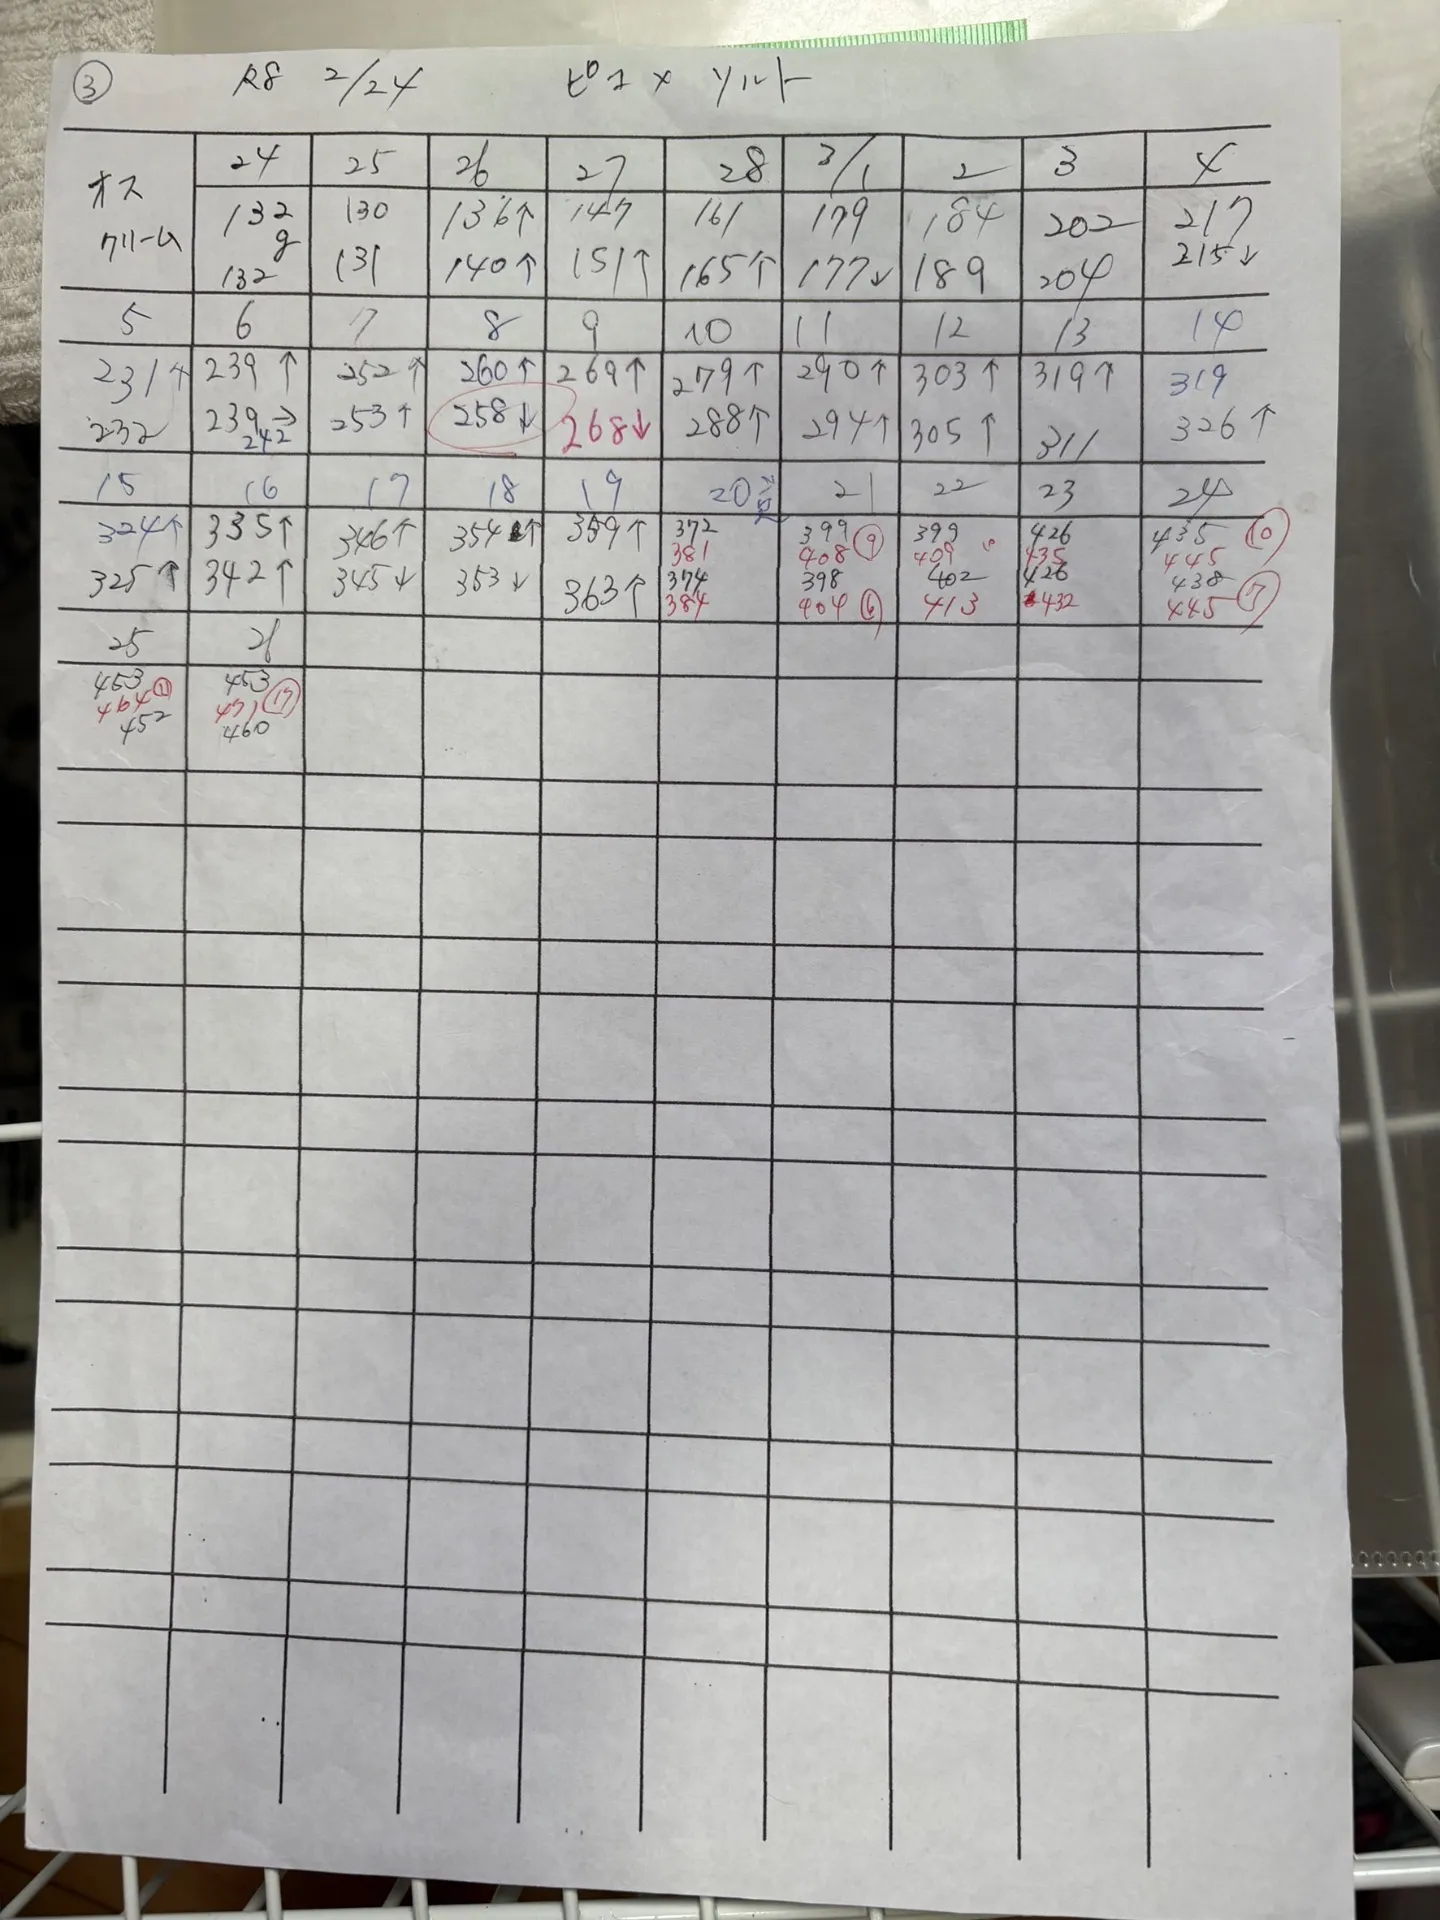 ③ R8 2/24 ピコ×ソルト
オス 24 25 26 27 28 3/1 2 3 4
クリーム 132g 130 136↑ 147 161 179 184 202 217
132 131 140↑ 151↑ 165↑ 177↓ 189 204 215↓
5 6 7 8 9 10 11 12 13 14
231↑ 239↑ 252↑ 260↑ 269↑ 279↑ 290↑ 303↑ 319↑ 319
232 239→ 253↑ 258↓ 268↓ 288↑ 294↑ 305↑ 311 326↑
242
15 16 17 18 19 20 21 22 23 24
324↑ 335↑ 346↑ 354↑ 359↑ 372 399 399 426 435
381 408⑨ 409 435 445⑩
325↑ 342↑ 345↓ 353↓ 363↑ 374 398 402 426 438
384 404⑥ 413 432 445⑦
25 26
453 453
464⑪ 471⑰
452 460